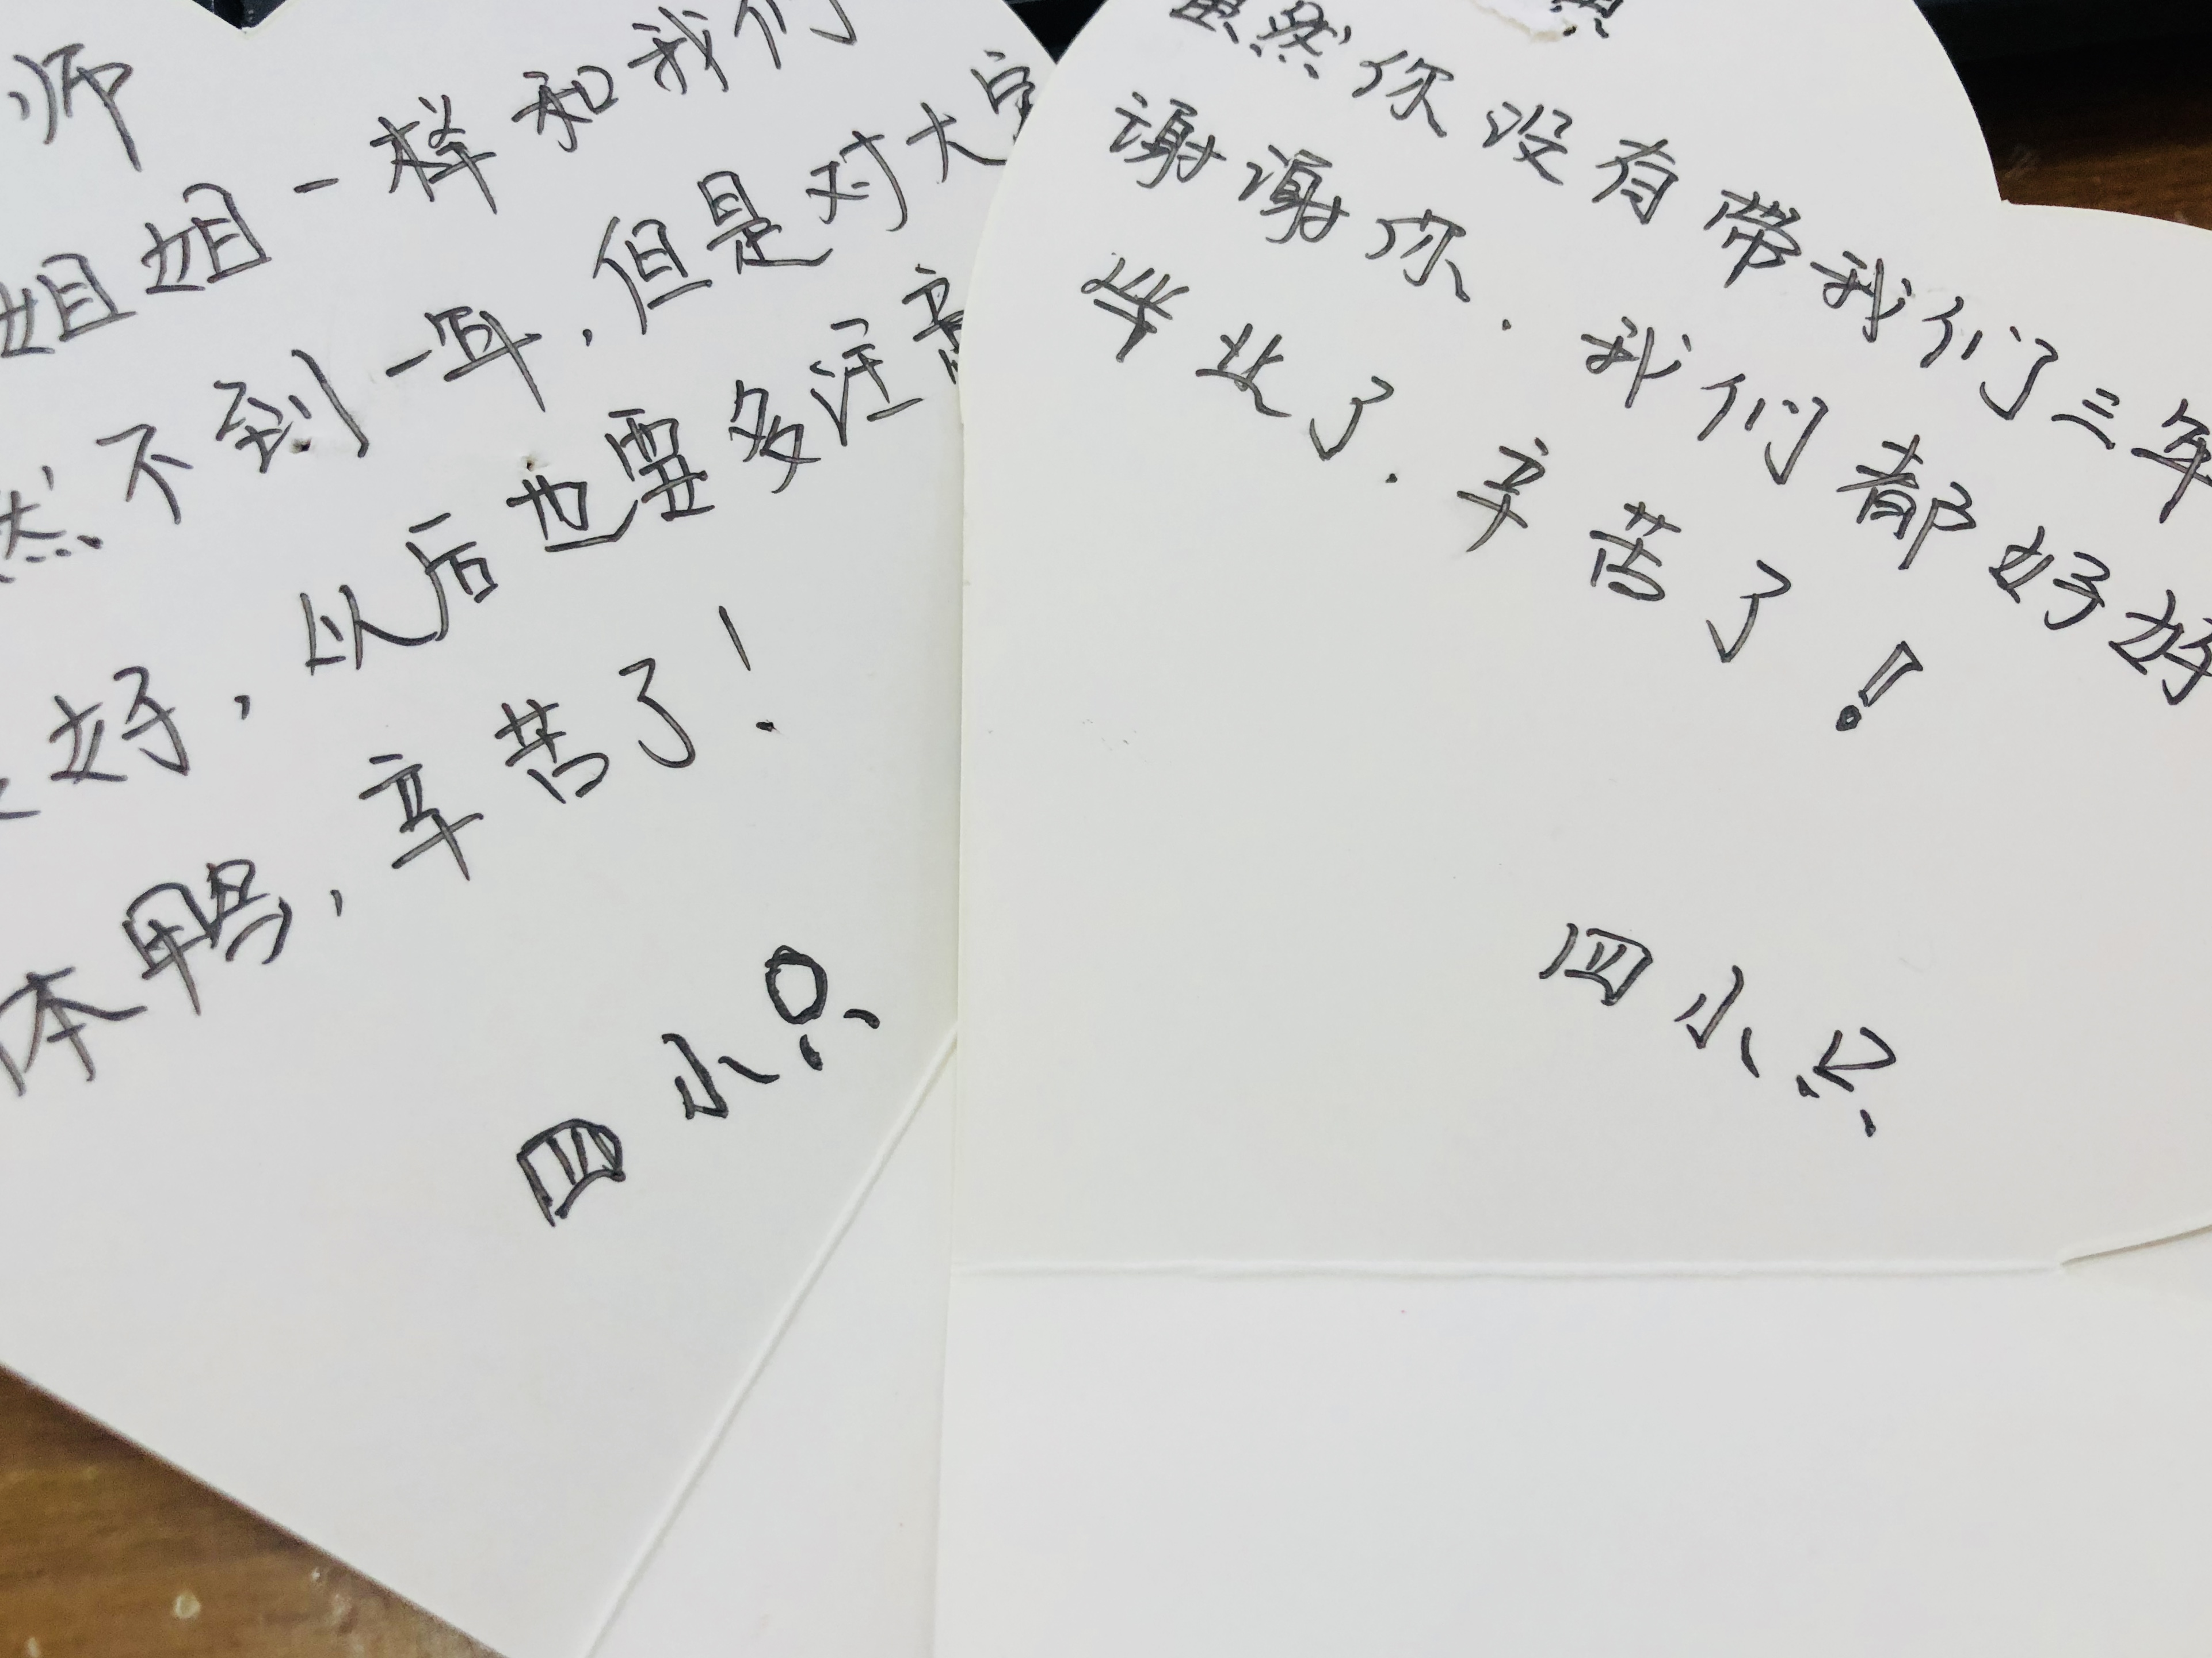 师
姐姐一样和我们
然不到一年，但是对大家
好，以后也要多注意
体鸭，辛苦了！
四小只
虽然你没有带我们了三年
谢谢你．我们都好好
毕业了．辛苦了！
四小只